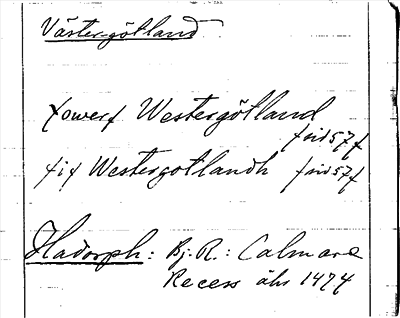 Västergötland
fowerf Westergötland
fvid 57 f
fif Westergotlandh fvid 57 f
Hadorph: Bj. R.: Calmare
Recess åhr 1474